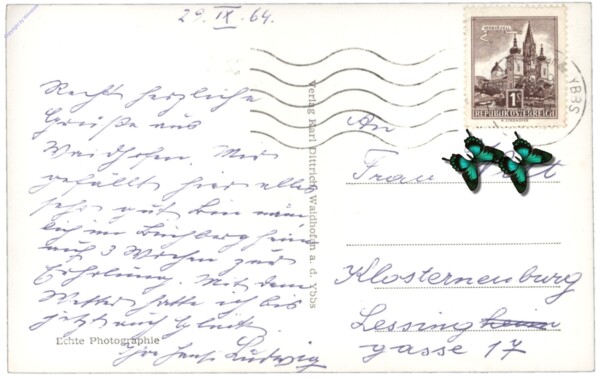 29. IX. 64.
Recht herzliche
Grüße aus
Waidhofen. Mir
gefällt hier alles
sehr gut bin näm
lich im Buchbergheim
auf 3 Wochen zur
Erholung. Mit dem
Wetter hatte ich bis
jetzt auch Glück.
Ludwig
Echte Photographie
Verlag Karl Dittrich, Waidhofen a. d. Ybbs
Mariazell
1S
REPUBLIK ÖSTERREICH
YBBS
An
Frau
Klosterneuburg
Lessing heim
gasse 17